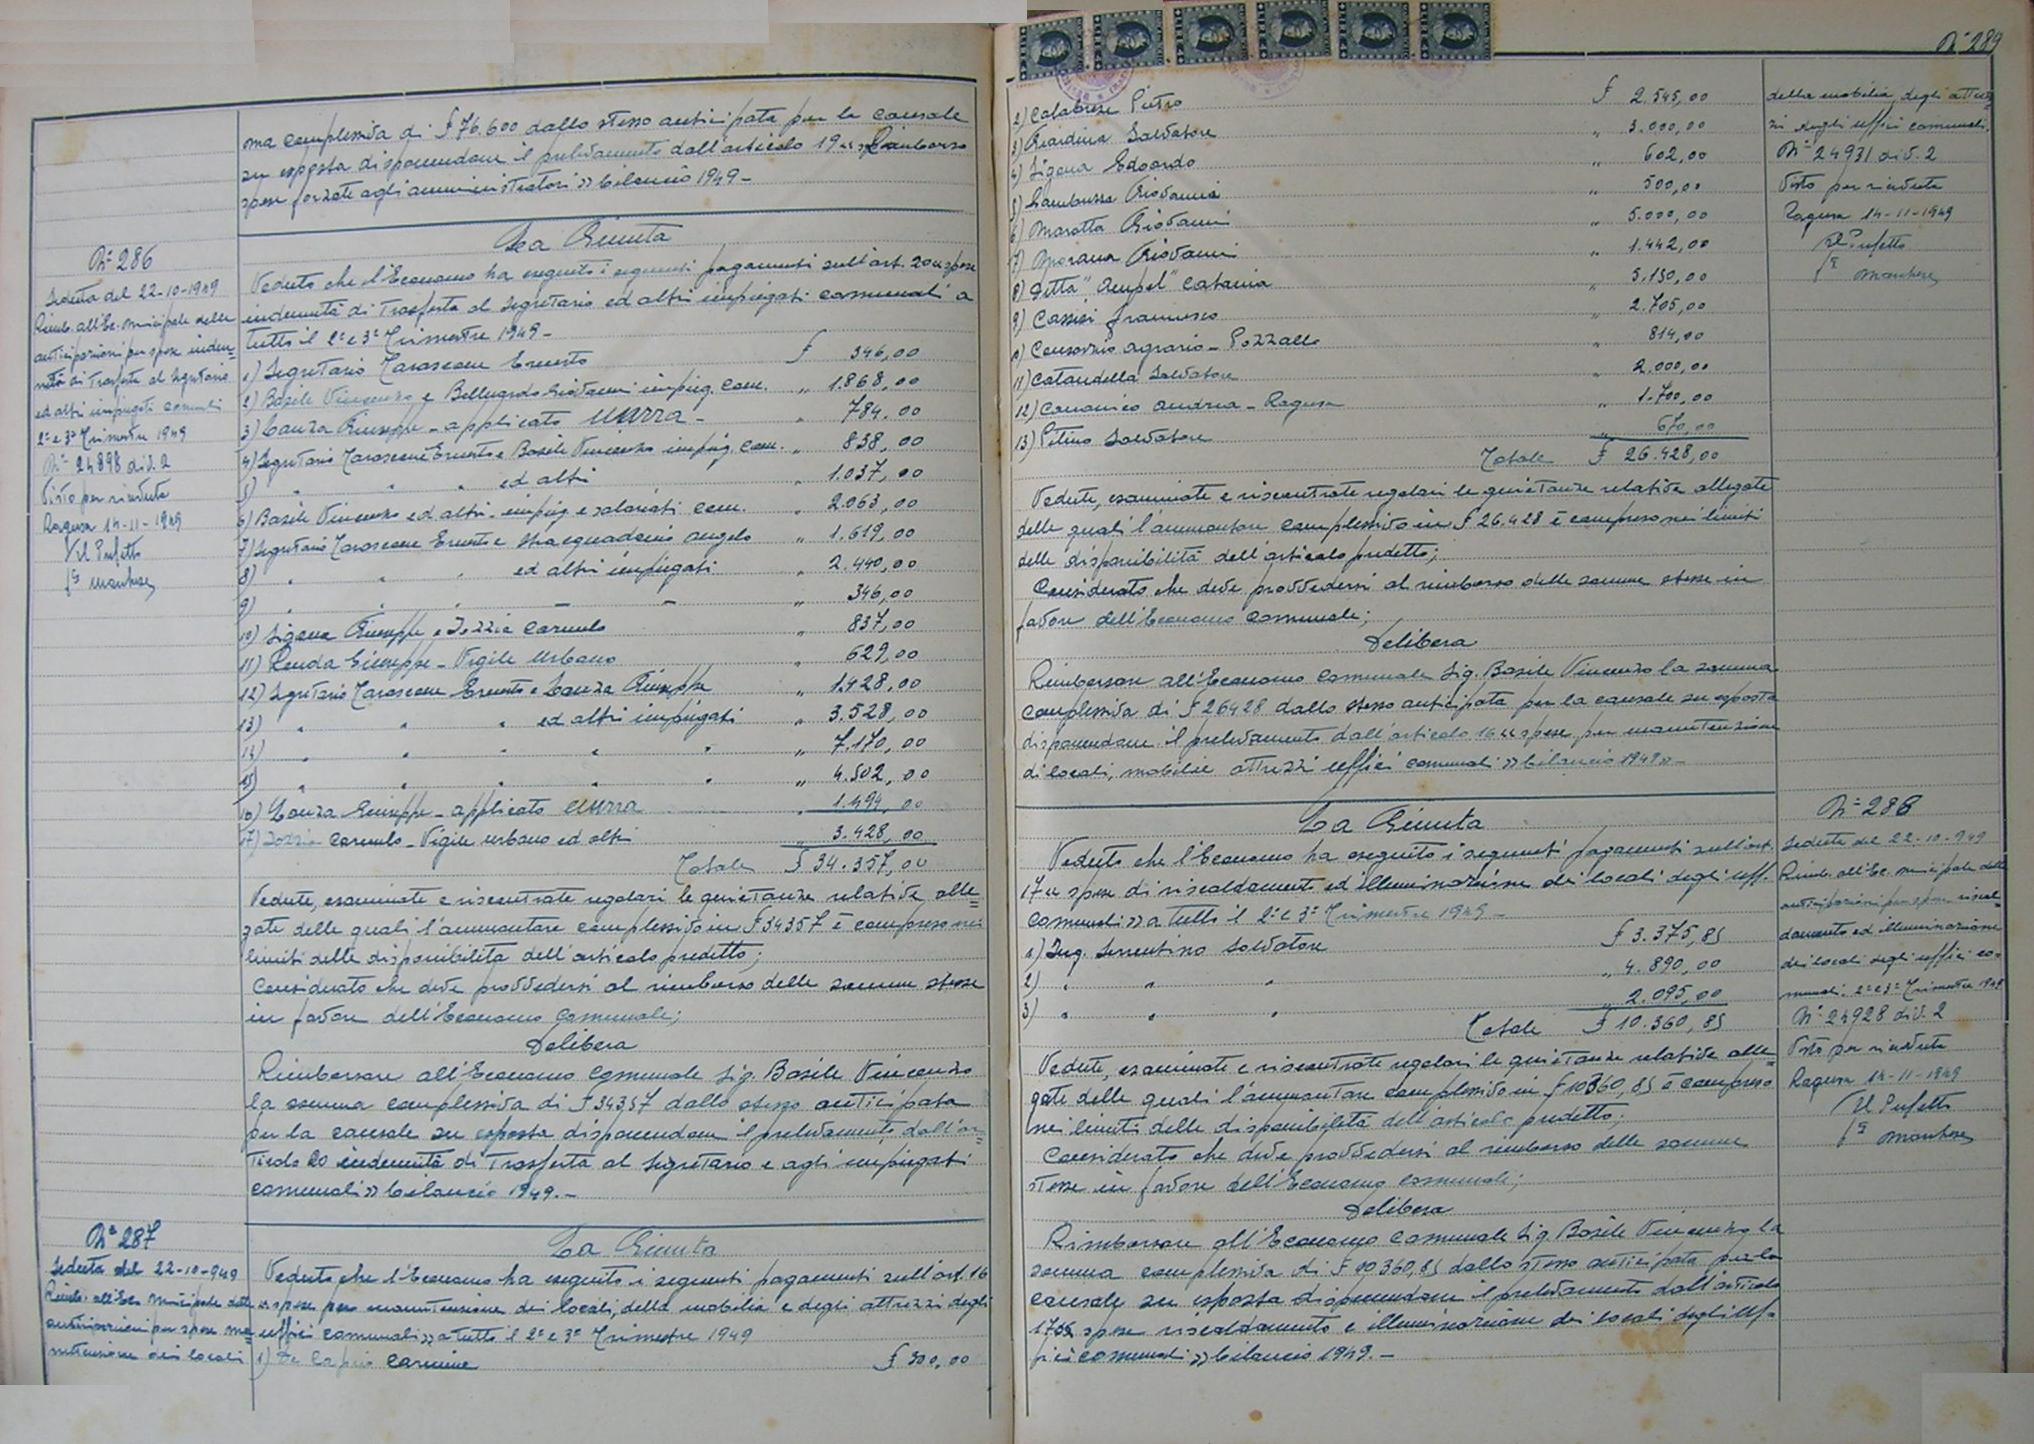 ma complessiva di £ 76.600 dallo stesso anticipata per la causale
su esposta disponendone il prelevamento dall'articolo 19 "Rimborso
spese forzate agli amministratori" bilancio 1949 -
N° 286
Seduta del 22-10-1949
Rimb. all'Ec. Municipale delle
anticipazioni per spese inden=
nità di Trasferta al Segretario
ed altri impiegati comunali
2° e 3° Trimestre 1949
N° 24898 div. 2
Visto per ricevuta
Ragusa 14-11-1949
Il Prefetto
La Giunta
Veduto che l'Economo ha eseguito i seguenti pagamenti sull'art. 20 "spese
indennità di Trasferta al Segretario ed altri impiegati comunali a
tutto il 2° e 3° Trimestre 1949 -
1) Segretario Ernesto £ 346,00
2) Basile Vincenzo e Belluardo Giovanni impieg. com. " 1.868,00
3) Lauza Giuseppe - applicato " 784,00
4) Segretario Ernesto e Basile Vincenzo impieg. com. " 838,00
5) " " " ed altri " 1.037,00
6) Basile Vincenzo ed altri - impieg. e salariati com. " 2.063,00
7) Segretario Ernesto e Angelo " 1.619,00
8) " " " ed altri impiegati " 2.440,00
9) " " " - - " 346,00
10) Ligama Giuseppe e Iozzia Carmelo " 837,00
11) Renda Giuseppe - Vigile Urbano " 629,00
12) Segretario Ernesto e Lauza Giuseppe " 1.428,00
13) " " " ed altri impiegati " 3.528,00
14) " " " " " " 7.170,00
15) " " " " " " 4.502,00
16) Lauza Giuseppe - applicato " 1.494,00
17) Iozzia Carmelo - Vigile urbano ed altri " 3.428,00
Totale £ 34.357,00
Vedute, esaminate e riscontrate regolari le quietanze relative alle=
gate delle quali l'ammontare complessivo in £ 34357 è compreso nei
limiti delle disponibilità dell'articolo predetto;
Considerato che deve provvedersi al rimborso delle somme stesse
in favore dell'Economo Comunale;
Delibera
Rimborsare all'Economo Comunale Sig. Basile Vincenzo
la somma complessiva di £ 34357 dallo stesso anticipata
per la causale su esposta disponendone il prelevamento dall'ar=
ticolo 20 indennità di Trasferta al Segretario e agli impiegati
comunali" bilancio 1949. -
N° 287
Seduta del 22-10-949
Rimb. all'Ec. Municipale delle
anticipazioni per spese ma=
nutenzione dei locali
La Giunta
Veduto che l'Economo ha eseguito i seguenti pagamenti sull'art. 16
"spese per manutenzione dei locali, della mobilia e degli attrezzi degli
uffici comunali" a tutto il 2° e 3° Trimestre 1949
1) De Caprio Carmine £ 300,00
N° 289
2) Calabrese Pietro £ 2.545,00
3) Giardina Salvatore " 3.000,00
4) Ligama Edoardo " 602,00
5) Giovanni " 500,00
6) Marotta Giovanni " 5.000,00
7) Morana Giovanni " 1.442,00
8) Ditta "Ampel" Catania " 5.150,00
9) Francesco " 2.705,00
10) Consorzio agrario - Pozzallo " 814,00
11) Cataudella Salvatore " 2.000,00
12) Canonico Andrea - Ragusa " 1.700,00
13) Pitino Salvatore " 670,00
Totale £ 26.428,00
della mobilia, degli attrez=
zi degli uffici comunali.
N° 24931 div. 2
Visto per ricevuta
Ragusa 14-11-1949
Il Prefetto
Vedute, esaminate e riscontrate regolari le quietanze relative allegate
delle quali l'ammontare complessivo in £ 26.428 è compreso nei limiti
delle disponibilità dell'articolo predetto;
Considerato che deve provvedersi al rimborso delle somme stesse in
favore dell'Economo Comunale;
Delibera
Rimborsare all'Economo Comunale Sig. Basile Vincenzo la somma
complessiva di £ 26428 dallo stesso anticipata per la causale su esposta
disponendone il prelevamento dall'articolo 16 "spese per manutenzione
di locali, mobilie attrezzi uffici comunali" bilancio 1949" -
La Giunta
Veduto che l'Economo ha eseguito i seguenti pagamenti sull'art.
17 "spese di riscaldamento ed illuminazione dei locali degli uff.
comunali" a tutto il 2° e 3° Trimestre 1949 -
1) Ing. Sorrentino Salvatore £ 3.375,85
2) " " " " 4.890,00
3) " " " " 2.095,00
Totale £ 10.360,85
Vedute, esaminate e riscontrate regolari le quietanze relative alle=
gate delle quali l'ammontare complessivo in £ 10360,85 è compreso
nei limiti delle disponibilità dell'articolo predetto;
Considerato che deve provvedersi al rimborso delle somme
stesse in favore dell'Economo comunale;
Delibera
Rimborsare all'Economo comunale Sig. Basile Vincenzo la
somma complessiva di £ 10360,85 dallo stesso anticipata per la
causale su esposta disponendone il prelevamento dall'articolo
17 "spese riscaldamento e illuminazione dei locali degli uf=
fici comunali" bilancio 1949. -
N° 288
Seduta del 22-10-949
Rimb. all'Ec. Municipale delle
anticipazioni per spese riscal=
damento ed illuminazione
dei locali degli uffici co=
munali. 2° e 3° Trimestre 1949
N° 24928 div. 2
Visto per ricevuta
Ragusa 14-11-1949
Il Prefetto